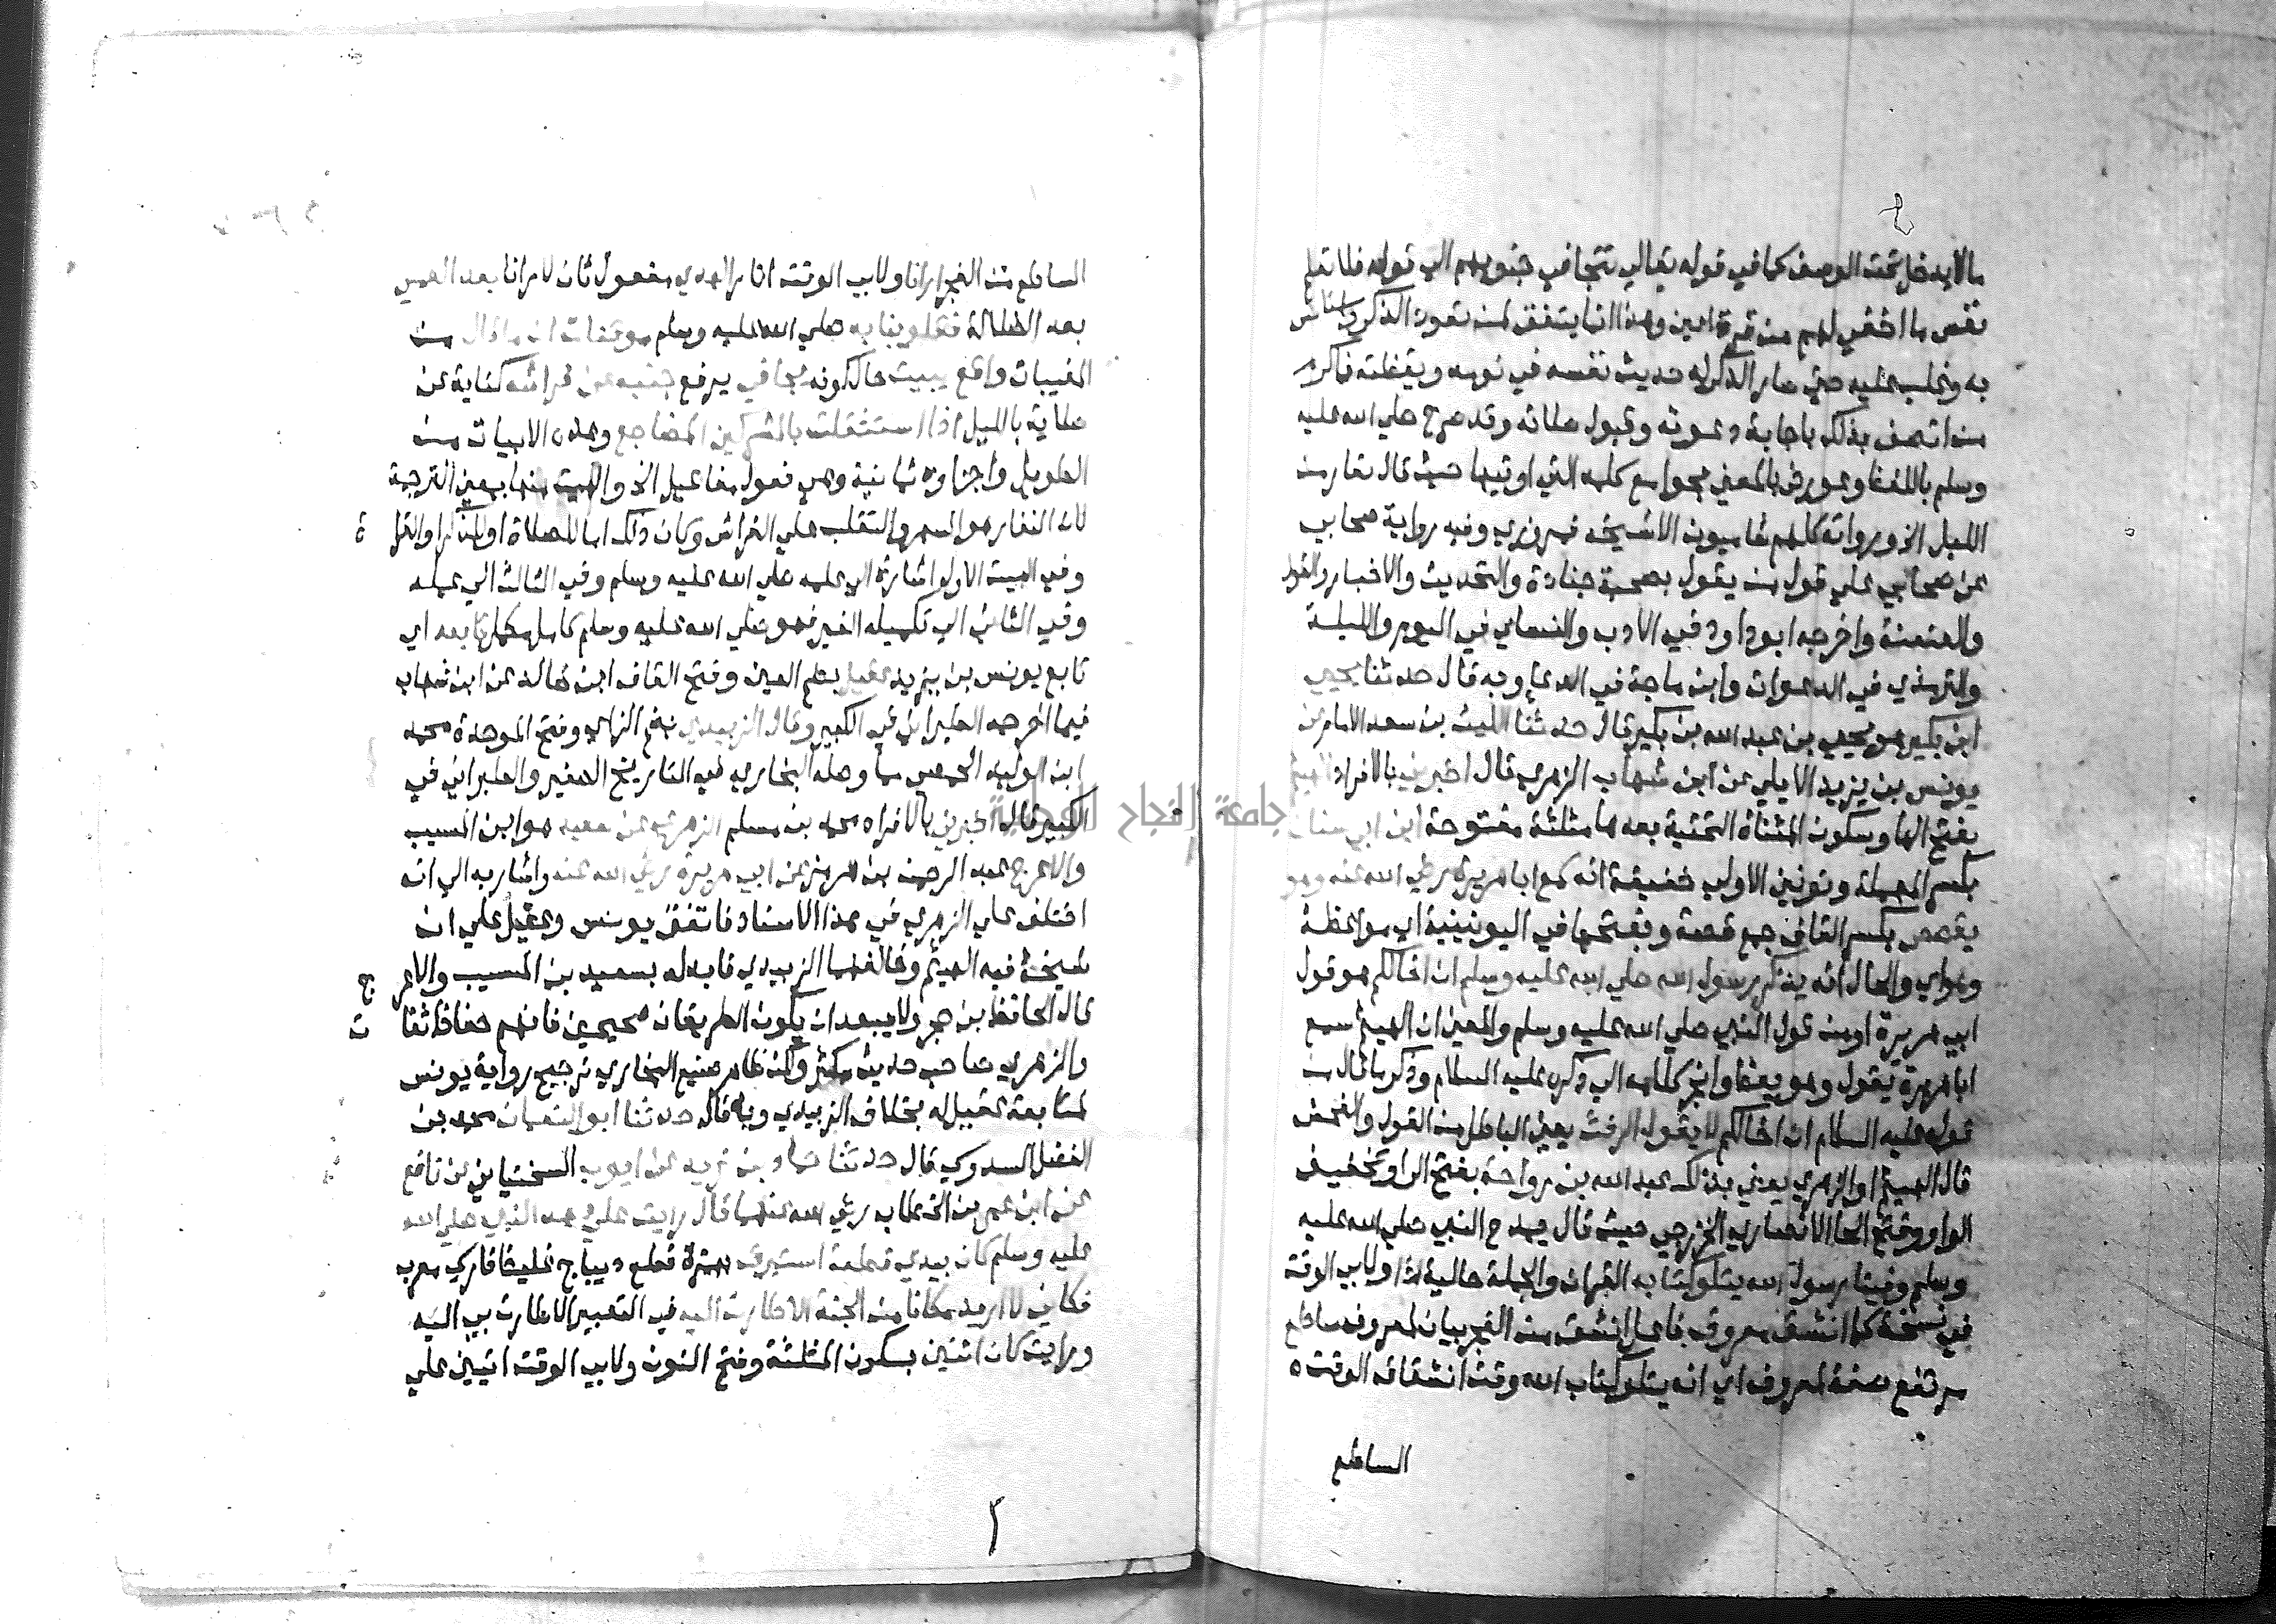 ما لا يدخل تحت الوصف كما في قوله تعالي تتجافي جنوبهم الي قوله فلا تعلم
نفس ما اخفي لهم من قرة اعين وهذا انما يتفق لمن تعود الذكر واستانس
به وغلب عليه حتي صار الذكر له حديث نفسه في نومه ويقظته فاكرم
من اتصف بذلك باجابة دعوته وقبول صلاته وقد صرح صلي الله عليه
وسلم باللفظ وعرض بالمعني بجوامع كلمه التي اوتيها حيث قال تعار من
الليل الخ ورواته كلهم شاميون الا شيخه فمروزي وفيه رواية صحابي
عن صحابي علي قول من يقول بصحبة جنادة والتحديث والاخبار والقول
والعنعنة واخرجه ابو داود في الادب والنسائي في اليوم والليلة
والترمذي في الدعوات وابن ماجة في الدعاء وبه قال حدثنا يحيي
ابن بكير هو يحيي بن عبد الله بن بكير قال حدثنا الليث بن سعد الامام عن
يونس بن يزيد الايلي عن ابن شهاب الزهري قال اخبرني بالافراد الهيثم
بفتح الها وسكون المثناة التحتية بعدها مثلثة مفتوحة ابن ابي سنان
بكسر المهملة ونونين الاولي خفيفة انه سمع ابا هريرة رضي الله عنه وهو
يقصص بكسر القاف جمع قصة وبفتحها في اليونينية اي مواعظه
وهو اي والحال انه يذكر رسول الله صلي الله عليه وسلم ان اخا لكم هو قول
ابي هريرة او من قول النبي صلي الله عليه وسلم والمعني ان الهيثم سمع
ابا هريرة يقول وهو يعظ وانجر كلامه الي ذكره عليه السلام وذكر ما قال من
قوله عليه السلام ان اخا لكم لا يقول الرفث يعني الباطل من القول والفحش
قال الهيثم او الزهري يعني بذلك عبد الله بن رواحة بفتح الرا وتخفيف
الواو وفتح الحا الانصاري الخزرجي حيث قال يمدح النبي صلي الله عليه
وسلم وفينا رسول الله يتلو كتابه القران والجملة حالية اذا ولابي الوقت
في نسخة كما انشق معروف فاعل انشق من الفجر بيان لمعروف ساطع
مرتفع صفة لمعروف اي انه يتلو كتاب الله وقت انشقاق الوقت
الساطع
الساطع من الفجر ارانا ولابي الوقت انا را الهدي مفعول ثان لارانا بعد العمي
بعد الضلالة فقلوبنا به صلي الله عليه وسلم موقنات ان ما قال من
المغيبات واقع يبيت حال كونه يجافي يرفع جنبه عن فراشه كناية عن
صلاته بالليل اذا استثقلت بالمشركين المضاجع وهذه الابيات من
الطويل واجزاؤه ثمانية وهي فعولن مفاعيلن الخ والبيت منها بمعني الترجمة
لان التعار هو السهر والتقلب علي الفراش وكان ذلك اما للصلاة او للذكر او القرا
ة
وفي البيت الاول اشارة الي علمه صلي الله عليه وسلم وفي الثالث الي عمله
وفي الثاني الي تكميله الغير فهو صلي الله عليه وسلم كامل مكمل تابعه اي
تابع يونس بن يزيد عقيل بضم العين وفتح القاف ابن خالد عن ابن شهاب
فيما اخرجه الطبراني في الكبير وقال الزبيدي بضم الزاي وفتح الموحدة محمد
ابن الوليد الحمصي مما وصله البخاري في التاريخ الصغير والطبراني في
الكبير قال اخبرني بالافراد محمد بن مسلم الزهري عن سعيد هو ابن المسيب
والاعرج عبد الرحمن بن هرمز عن ابي هريرة رضي الله عنه واشار به الي انه
اختلف علي الزهري في هذا الاسناد فاتفق يونس وعقيل علي ان
شيخه فيه الهيثم وخالفهما الزبيدي فابدله بسعيد بن المسيب والاعر
ج
قال الحافظ بن حجر ولا يبعد ان يكون الطريقان صحيحين فانهم حفاظ ثقا
ت
والزهري صاحب حديث مكثر ولكن ظاهر صنيع البخاري ترجيح رواية يونس
لمتابعة عقيل له بخلاف الزبيدي وبه قال حدثنا ابو النعمان محمد بن
الفضل السدوسي قال حدثنا حماد بن زيد عن ايوب السختياني عن نافع
عن ابن عمر بن الخطاب رضي الله عنهما قال رايت علي عهد النبي صلي الله
عليه وسلم كان بيدي قطعة استبرق بهمزة قطع ديباج غليظ فارسي معرب
فكاني لا اريد مكانا من الجنة الا طارت اليه في التعبير الا طارت بي اليه
ورايت كان اثنين بسكون المثلثة وفتح النون ولابي الوقت اتيين علي
جامعة النجاح الوطنية